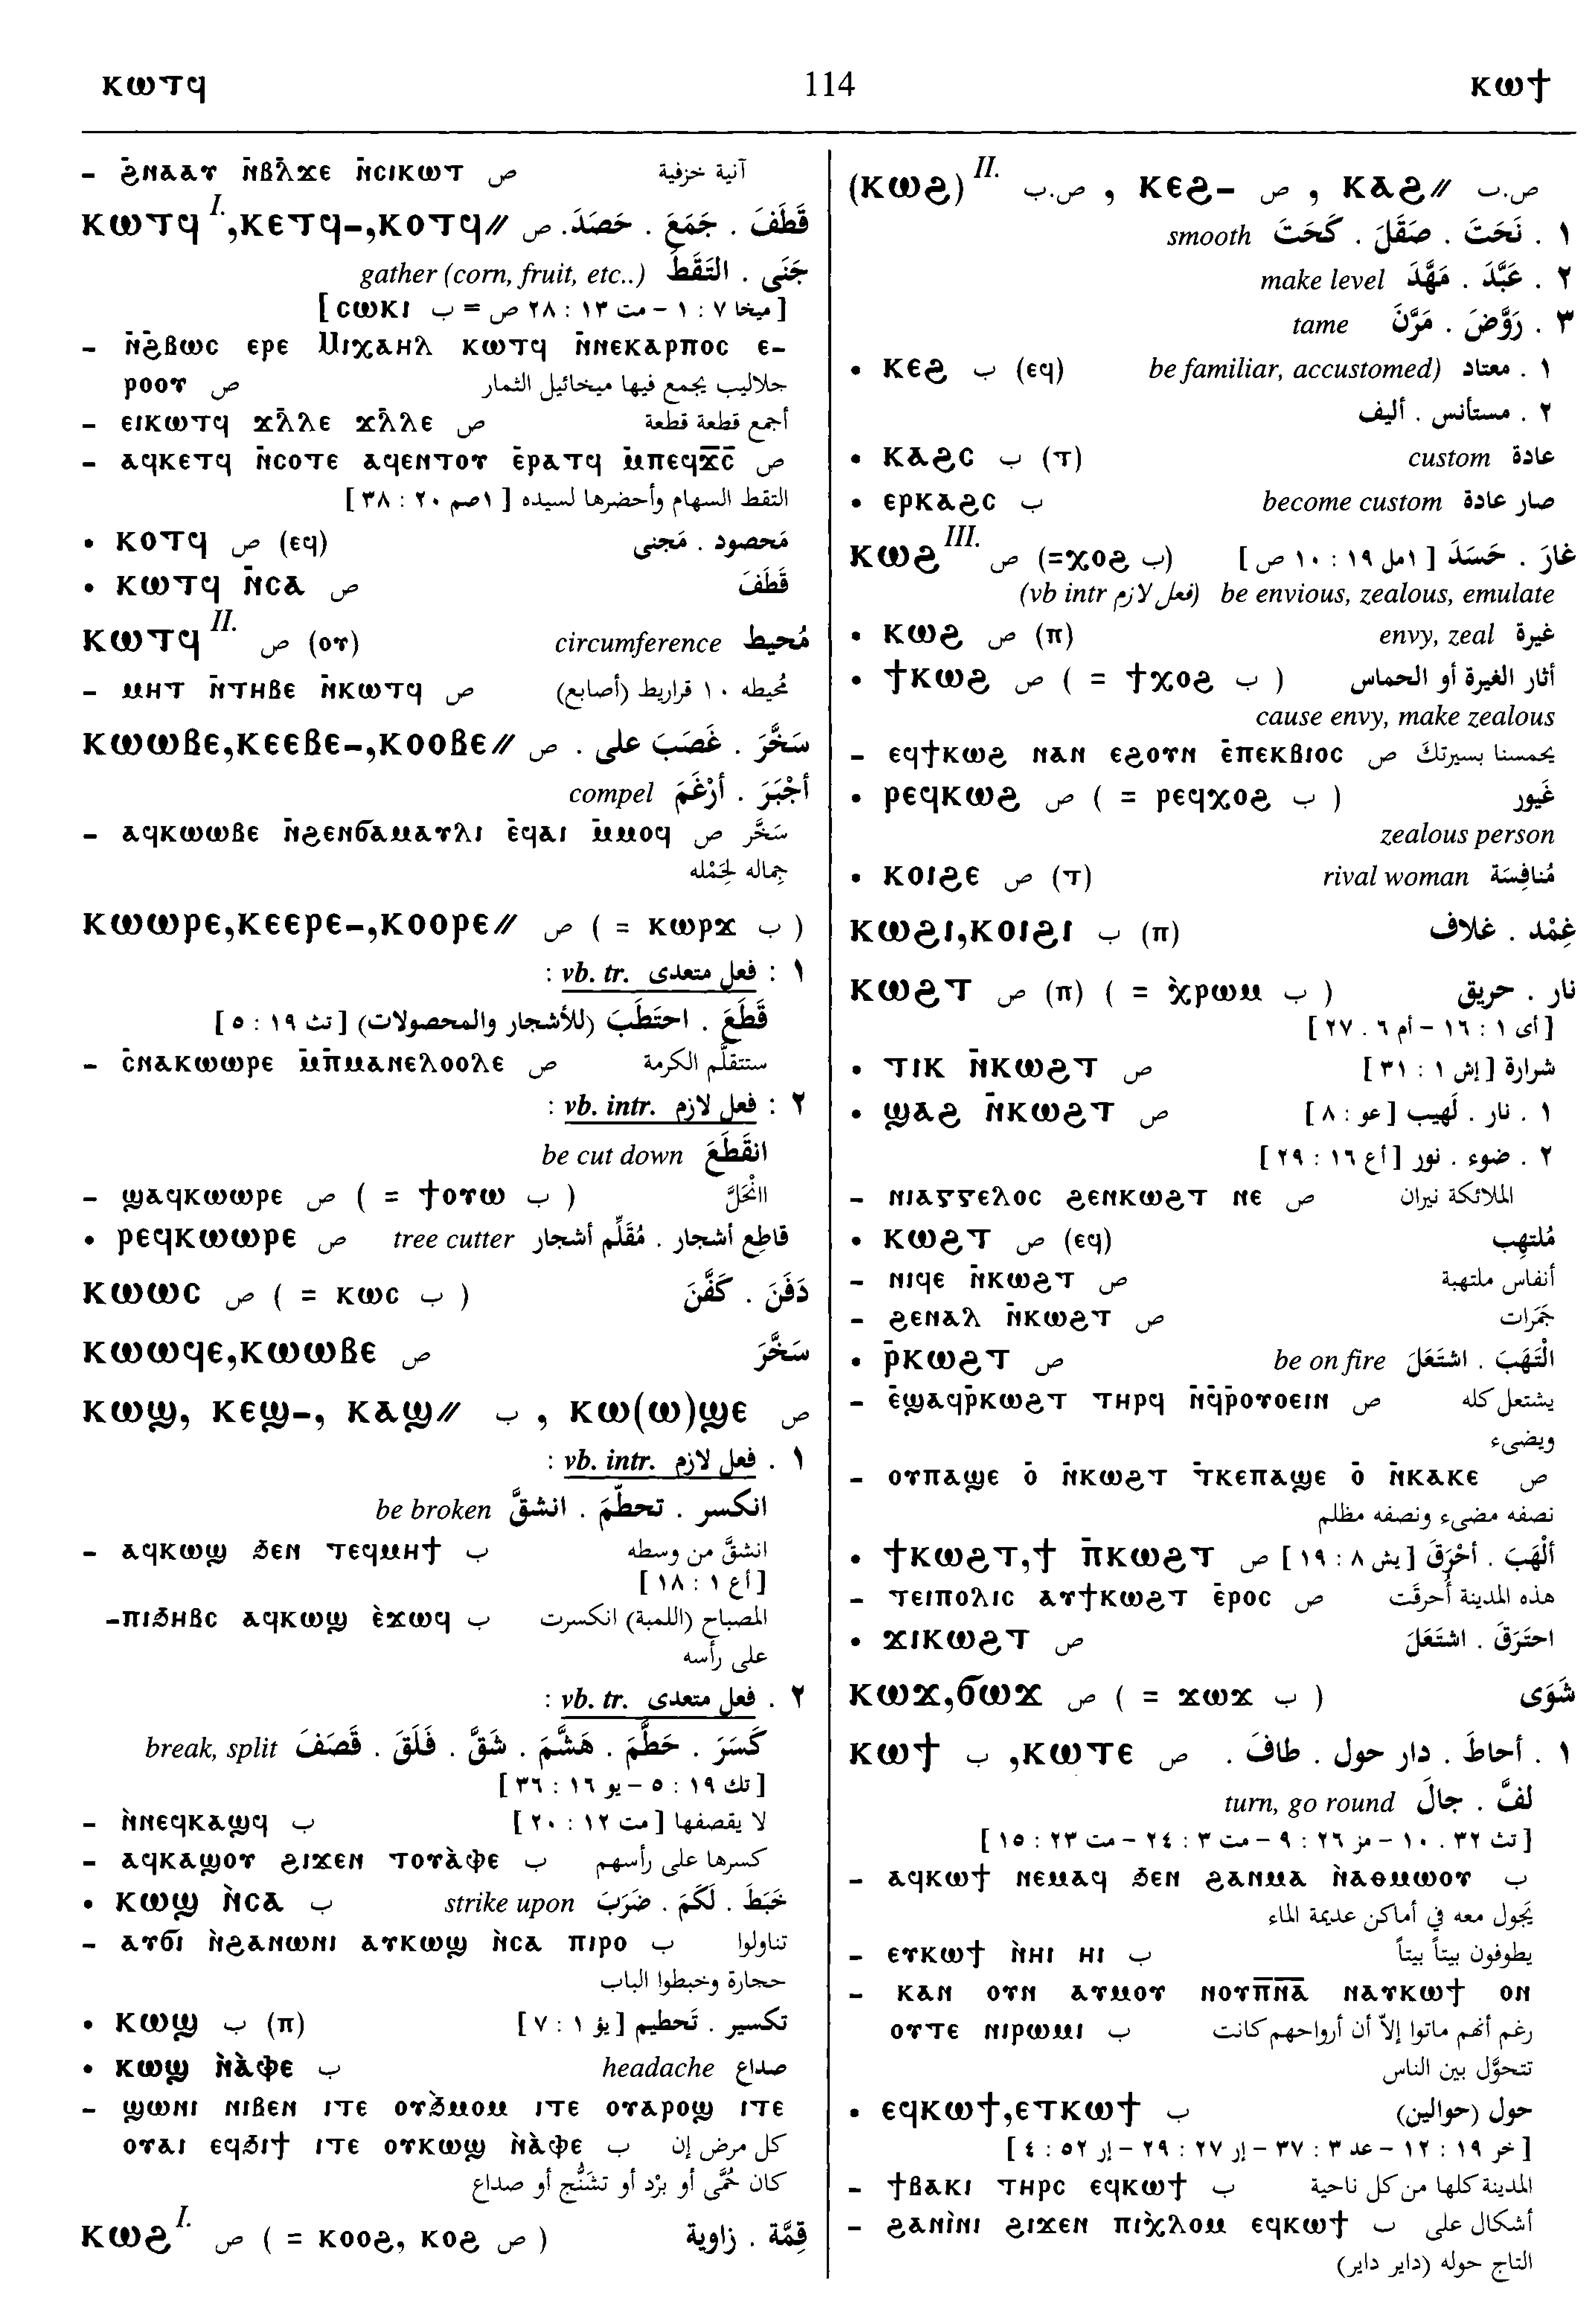 ⲕⲱⲧϥ 114 ⲕⲱϯ
– ϩ̄ⲛⲁⲁⲩ ⲛ̄ⲃⲗ̄ϫⲉ ⲛ̄ⲥⲓⲕⲱⲧ ص آنية خزفية
ⲕⲱⲧϥ I. ,ⲕⲉⲧϥ–,ⲕⲟⲧϥ// ص قَطَفَ . جَمَعَ . حَصَدَ.
جَنَى . التَقَطَ gather (corn, fruit, etc..)
[ ميخا ٧ : ١ – مت ١٣ : ٢٨ ص = ب ⲥⲱⲕⲓ ]
– ⲛ̄ϩ̄ⲃⲱⲥ ⲉⲣⲉ Ⲙⲓⲭⲁⲏⲗ ⲕⲱⲧϥ ⲛ̄ⲛⲉⲕⲁⲣⲡⲟⲥ ⲉ–
ⲣⲟⲟⲩ ص جلاليب يجمع فيها ميخائيل الثمار
– ⲉⲓⲕⲱⲧϥ ϫⲗ̄ⲗⲉ ϫⲗ̄ⲗⲉ ص أجمع قطعة قطعة
– ⲁϥⲕⲉⲧϥ ⲛ̄ⲥⲟⲧⲉ ⲁϥⲉⲛⲧⲟⲩ ⲉ̄ⲣⲁⲧϥ ⲙ̄ⲡⲉϥϫ̄ⲥ̄ ص
التقط السهام وأحضرها لسيده [ ١صم ٢٠ : ٣٨ ]
• ⲕⲟⲧϥ ص (ⲉϥ) مَحصود . مَجنى
• ⲕⲱⲧϥ ⲛ̄ⲥⲁ ص قَطَفَ
ⲕⲱⲧϥ II. ص (ⲟⲩ) circumference مُحيط
– ⲙⲏⲧ ⲛ̄ⲧⲏⲃⲉ ⲛ̄ⲕⲱⲧϥ ص مُحيطه ١٠ قراريط (أصابع)
ⲕⲱⲱⲃⲉ,ⲕⲉⲉⲃⲉ–,ⲕⲟⲟⲃⲉ// ص سَخَّرَ . غَصَبَ على .
أجْبَرَ . أرْغَمَ compel
– ⲁϥⲕⲱⲱⲃⲉ ⲛ̄ϩⲉⲛϭⲁⲙⲁⲩⲗⲓ ⲉ̄ϥⲁⲓ ⲙ̄ⲙⲟϥ ص سَخَّر
جِماله لِحَمْله
ⲕⲱⲱⲣⲉ,ⲕⲉⲉⲣⲉ–,ⲕⲟⲟⲣⲉ// ص ( = ⲕⲱⲣϫ ب )
١ : فعل متعدى vb. tr. :
قَطَعَ . احتَطَبَ (للأشجار والمحصولات) [ تث ١٩ : ٥ ]
– ⲥ̄ⲛⲁⲕⲱⲱⲣⲉ ⲙ̄ⲡ̄ⲙⲁⲛⲉⲗⲟⲟⲗⲉ ص ستتقلَّم الكرمة
٢ : فعل لازم vb. intr. :
انقَطَعَ be cut down
– ϣⲁϥⲕⲱⲱⲣⲉ ص ( = ϯⲟⲩⲱ ب ) اانْحَلَّ
• ⲣⲉϥⲕⲱⲱⲣⲉ ص tree cutter قاطِع أشجار . مُقَلِّم أشجار
ⲕⲱⲱⲥ ص ( = ⲕⲱⲥ ب ) دَفَنَ . كَفَّنَ
ⲕⲱⲱϥⲉ,ⲕⲱⲱⲃⲉ ص سَخَّرَ
ⲕⲱϣ, ⲕⲉϣ–, ⲕⲁϣ// ب , ⲕⲱ(ⲱ)ϣⲉ ص
١ . فعل لازم vb. intr. :
انكسر . تحطَّمَ . انشقَّ be broken
– ⲁϥⲕⲱϣ ϧⲉⲛ ⲧⲉϥⲙⲏϯ ب انشقَّ من وسطه
[ أع ١ : ١٨ ]
–ⲡⲓϧⲏⲃⲥ ⲁϥⲕⲱϣ ⲉ̀ϫⲱϥ ب المصباح (اللمبة) انكسرت
على رأسه
٢ . فعل متعدى vb. tr. :
كَسَرَ . حَطَّمَ . هَشَّمَ . شَقَّ . فَلَقَ . قَصَفَ break, split
[ تك ١٩ : ٥ – يو ١٦ : ٣٦ ]
– ⲛ̀ⲛⲉϥⲕⲁϣϥ ب لا يقصفها [ مت ١٢ : ٢٠ ]
– ⲁϥⲕⲁϣⲟⲩ ϩⲓϫⲉⲛ ⲧⲟⲩⲁ̀ⲫⲉ ب كسرها على رأسهم
• ⲕⲱϣ ⲛ̀ⲥⲁ ب strike upon خَبَطَ . لَكَمَ . ضَرَبَ
– ⲁⲩϭⲓ ⲛ̀ϩⲁⲛⲱⲛⲓ ⲁⲩⲕⲱϣ ⲛ̀ⲥⲁ ⲡⲓⲣⲟ ب تناولوا
حجارة وخبطوا الباب
• ⲕⲱϣ ب (ⲡ) تكسير . تَحطيم [ يؤ ١ : ٧ ]
• ⲕⲱϣ ⲛ̀ⲁ̀ⲫⲉ ب headache صداع
– ϣⲱⲛⲓ ⲛⲓⲃⲉⲛ ⲓⲧⲉ ⲟⲩϧ̀ⲙⲟⲙ ⲓⲧⲉ ⲟⲩⲁⲣⲟϣ ⲓⲧⲉ
ⲟⲩⲁⲓ ⲉϥϧⲓϯ ⲓⲧⲉ ⲟⲩⲕⲱϣ ⲛ̀ⲁ̀ⲫⲉ ب كل مرض إن
كان حُمَّى أو برْد أو تشَنُّج أو صداع
ⲕⲱϩ I. ص ( = ⲕⲟⲟϩ, ⲕⲟϩ ص ) قِمَّة . زاوية
(ⲕⲱϩ) II. ص.ب , ⲕⲉϩ– ص , ⲕⲁϩ// ص.ب
١ . نَحَتَ . صَقَلَ . كَحَتَ smooth
٢ . عَبَّدَ . مَهَّدَ make level
٣ . رَوَّضَ . مَرَّنَ tame
• ⲕⲉϩ ب (ⲉϥ) be familiar, accustomed) ١ . معتاد
٢ . مستأنس . أليف
• ⲕⲁϩⲥ ب (ⲧ) custom عادة
• ⲉⲣⲕⲁϩⲥ ب become custom صار عادة
ⲕⲱϩ III. ص (=ⲭⲟϩ ب) غارَ . حَسَدَ [ ١مل ١٩ : ١٠ ص ]
(vb intr فعل لازم) be envious, zealous, emulate
• ⲕⲱϩ ص (ⲡ) envy, zeal غيرة
• ϯⲕⲱϩ ص ( = ϯⲭⲟϩ ب ) أثار الغيرة أو الحماس
cause envy, make zealous
– ⲉϥϯⲕⲱϩ ⲛⲁⲛ ⲉϩⲟⲩⲛ ⲉ̄ⲡⲉⲕⲃⲓⲟⲥ ص يحمسنا بسيرتك
• ⲣⲉϥⲕⲱϩ ص ( = ⲣⲉϥⲭⲟϩ ب ) غَيور
zealous person
• ⲕⲟⲓϩⲉ ص (ⲧ) rival woman مُنافِسَة
ⲕⲱϩⲓ,ⲕⲟⲓϩⲓ ب (ⲡ) غِمْد . غلاف
ⲕⲱϩⲧ ص (ⲡ) ( = ⲭ̀ⲣⲱⲙ ب ) نار . حريق
[ أى ١ : ١٦ – أم ٦ . ٢٧ ]
• ⲧⲓⲕ ⲛ̄ⲕⲱϩⲧ ص شرارة [ إش ١ : ٣١ ]
• ϣⲁϩ ⲛ̄ⲕⲱϩⲧ ص ١ . نار . لَهيب [ عو : ٨ ]
٢ . ضوء . نور [ أع ١٦ : ٢٩ ]
– ⲛⲓⲁⲅⲅⲉⲗⲟⲥ ϩⲉⲛⲕⲱϩⲧ ⲛⲉ ص الملائكة نيران
• ⲕⲱϩⲧ ص (ⲉϥ) مُلتهِب
– ⲛⲓϥⲉ ⲛ̄ⲕⲱϩⲧ ص أنفاس ملتهبة
– ϩⲉⲛⲁⲗ ⲛ̄ⲕⲱϩⲧ ص جَمَرات
• ⲣ̄ⲕⲱϩⲧ ص be on fire الْتَهَبَ . اشتَعَلَ
– ⲉ̄ϣⲁϥⲣ̄ⲕⲱϩⲧ ⲧⲏⲣϥ ⲛ̄ϥⲣ̄ⲟⲩⲟⲉⲓⲛ ص يشتعل كله
ويضىء
– ⲟⲩⲡⲁϣⲉ ⲟ̄ ⲛ̄ⲕⲱϩⲧ ⲧ̄ⲕⲉⲡⲁϣⲉ ⲟ̄ ⲛ̄ⲕⲁⲕⲉ ص
نصفه مضىء ونصفه مظلم
• ϯⲕⲱϩⲧ,ϯ ⲡ̄ⲕⲱϩⲧ ص ألْهَبَ . أحْرَقَ [ يش ٨ : ١٩ ]
– ⲧⲉⲓⲡⲟⲗⲓⲥ ⲁⲩϯⲕⲱϩⲧ ⲉ̄ⲣⲟⲥ ص هذه المدينة أُحرقَت
• ϫⲓⲕⲱϩⲧ ص احتَرَقَ . اشتَعَلَ
ⲕⲱϫ,ϭⲱϫ ص ( = ϫⲱϫ ب ) شَوَى
ⲕⲱϯ ب ,ⲕⲱⲧⲉ ص ١ . أحاطَ . دار حول . طافَ .
لفَّ . جالَ turn, go round
[ تث ٣٢ . ١٠ – مز ٢٦ : ٩ – مت ٣ : ٢٤ – مت ٢٣ : ١٥ ]
– ⲁϥⲕⲱϯ ⲛⲉⲙⲁϥ ϧⲉⲛ ϩⲁⲛⲙⲁ ⲛ̀ⲁⲑⲙⲱⲟⲩ ب
يَجول معه في أماكن عديمة الماء
– ⲉⲩⲕⲱϯ ⲛ̀ⲏⲓ ⲏⲓ ب يطوفون بيتاً بيتاً
– ⲕⲁⲛ ⲟⲩⲛ ⲁⲩⲙⲟⲩ ⲛⲟⲩⲡ̅ⲛ̅ⲁ̅ ⲛⲁⲩⲕⲱϯ ⲟⲛ
ⲟⲩⲧⲉ ⲛⲓⲣⲱⲙⲓ ب رغم أنهم ماتوا إلاّ أن أرواحهم كانت
تتحوَّل بين الناس
• ⲉϥⲕⲱϯ,ⲉⲧⲕⲱϯ ب حول (حوالين)
[ خر ١٩ : ١٢ – عد ٣ : ٣٧ – إر ٢٧ : ٢٩ – إر ٥٢ : ٤ ]
– ϯⲃⲁⲕⲓ ⲧⲏⲣⲥ ⲉϥⲕⲱϯ ب المدينة كلها من كل ناحية
– ϩⲁⲛⲓ̀ⲛⲓ ϩⲓϫⲉⲛ ⲡⲓⲭ̀ⲗⲟⲙ ⲉϥⲕⲱϯ ب أشكال على
التاج حوله (داير داير)